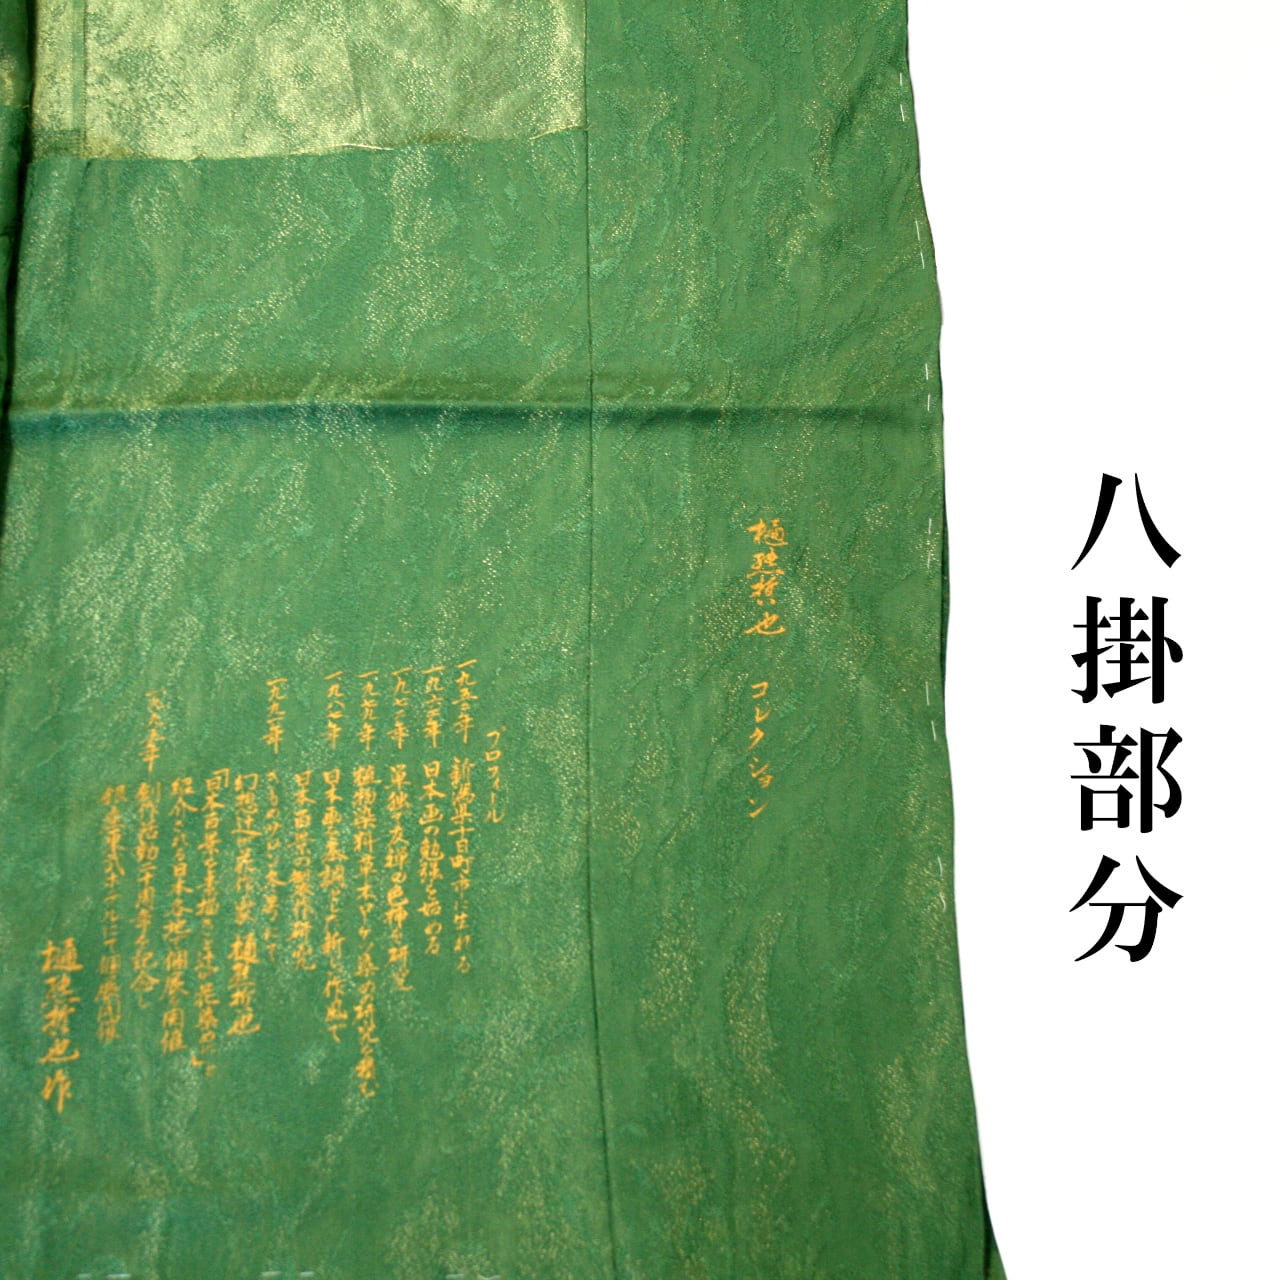 八掛部分
樋熊哲也 コレクション
プロフィール
一九五三年 新潟県十日町市に生れる
日本画の勉強を始める
単独で友禅の色挿を研究
一九七九年 植物染料草木ローケツ染めの研究を積む
一九八七年 日本画を基調とした新しい作風で
日本百景の製作研究
一九九一年 きものサロン冬号にて
幻想辻が花作家 樋熊哲也
「日本百景を素描きと辻が花染め
紹介される日本各地で個展を開催
創作活動二十周年を記念し
銀座東武ホテルにて個展開催
樋熊哲也 作